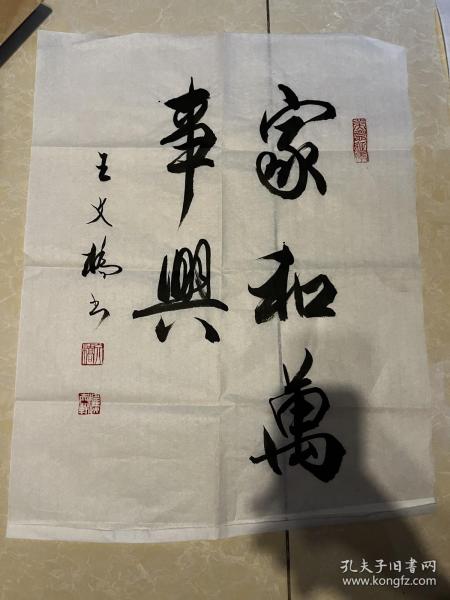 家和萬
事興
王文橋书
孔夫子旧书网
www.kongfz.com